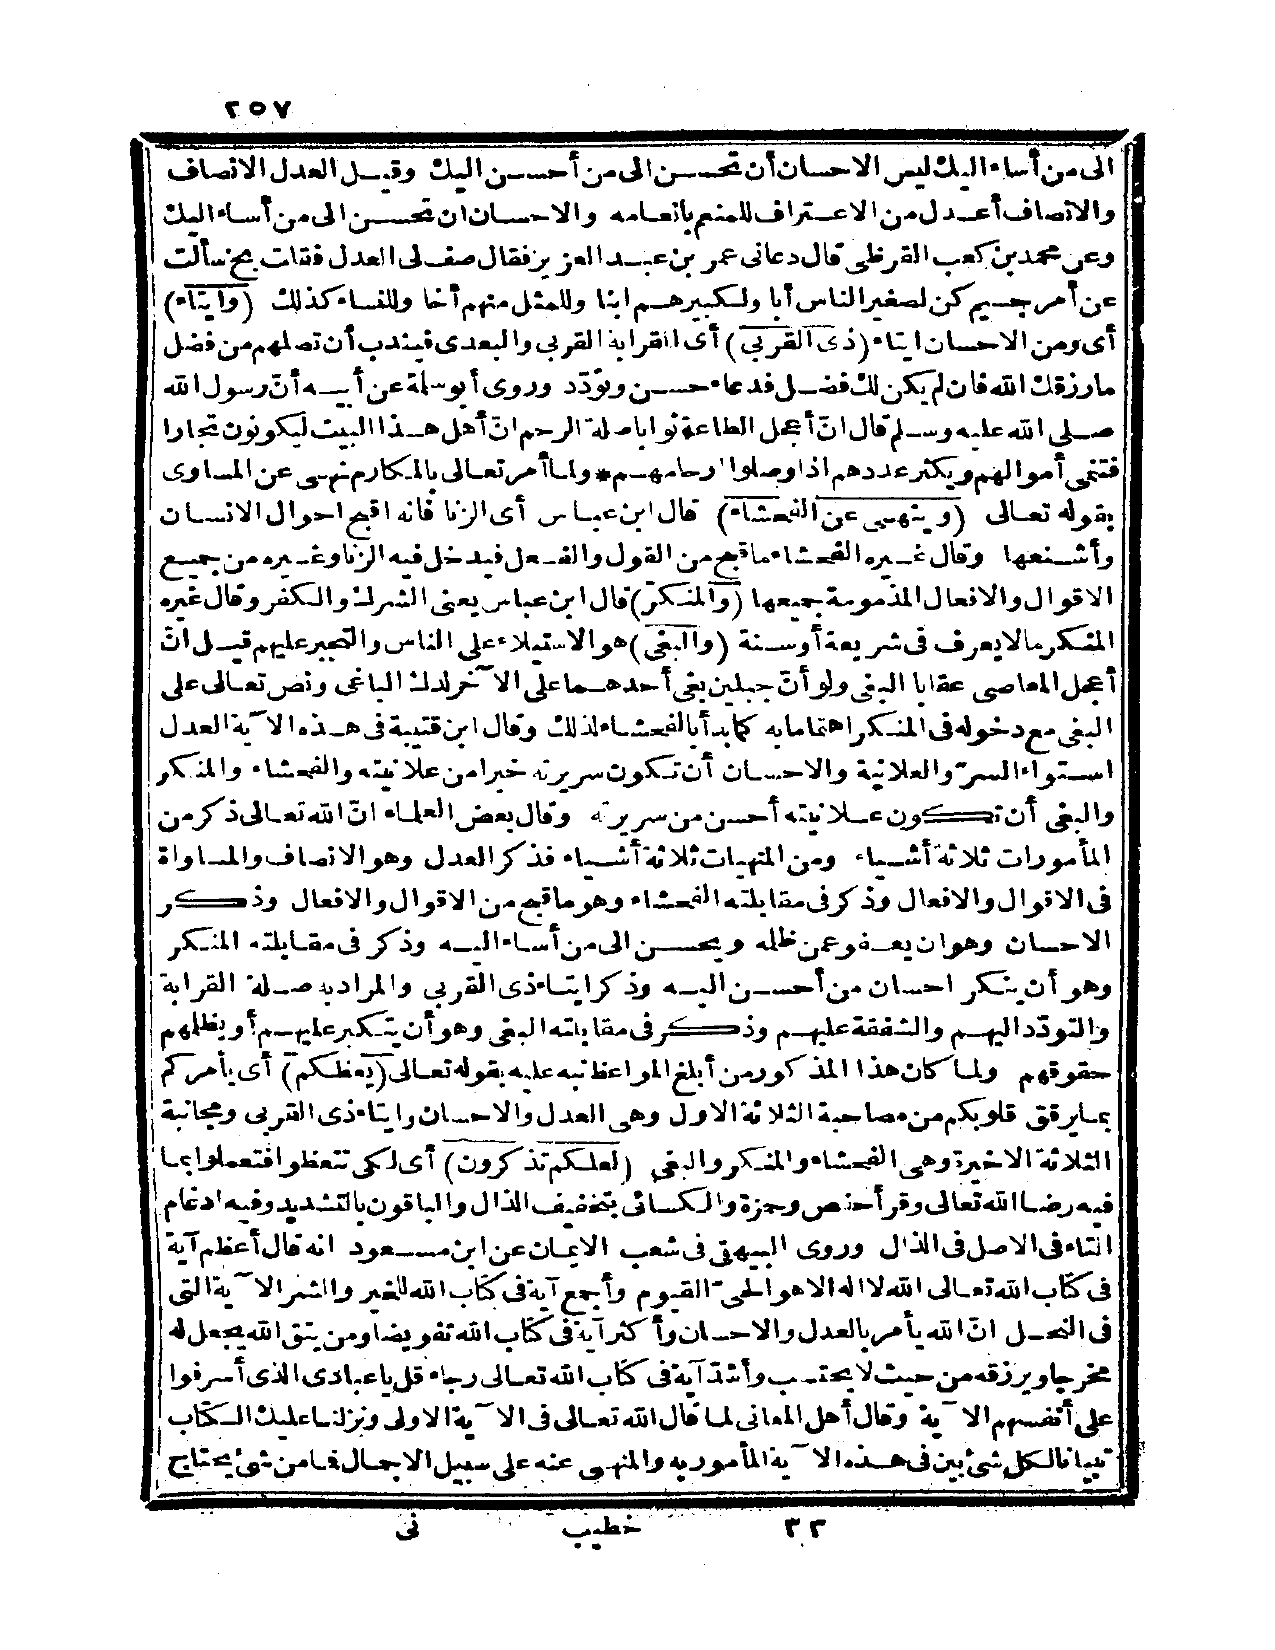 ٢٥٧
الى من أساء اليك ليس الاحسان أن تحسن الى من أحسن اليك وقيل العدل الانصاف
والانصاف أعدل من الاعتراف للمنعم بانعامه والاحسان ان تحسن الى من أساء اليك
وعن محمد بن كعب القرظى قال دعانى عمر بن عبد العزيز فقال صف لى العدل فقلت بخ سألت
عن أمر جسيم كن لصغير الناس أبا ولكبيرهم ابنا وللمثل منهم أخا وللنساء كذلك (وايتاء)
أى ومن الاحسان ايتاء (ذى القربى) أى القرابة القربى والبعدى فيندب أن تصلهم من فضل
ما رزقك الله فان لم يكن لك فضل فدعاء حسن وتودّد وروى أبو سلمة عن أبيه أنّ رسول الله
صلى الله عليه وسلم قال انّ أعجل الطاعة ثوابا صلة الرحم انّ أهل هذا البيت ليكونون تجارا
فتنمى أموالهم ويكثر عددهم اذا وصلوا ارحامهم * ولما أمر تعالى بالمكارم نهى عن المساوى
بقوله تعالى (وينهى عن الفحشاء) قال ابن عباس أى الزنا فانه اقبح احوال الانسان
وأشنعها وقال غيره الفحشاء ما قبح من القول والفعل فيدخل فيه الزنا وغيره من جميع
الاقوال والافعال المذمومة جميعها (والمنكر) قال ابن عباس يعنى الشرك والكفر وقال غيره
المنكر مالا يعرف فى شريعة أو سنة (والبغى) هو الاستيلاء على الناس والتجبر عليهم قيل انّ
أعجل المعاصى عقابا البغى ولو أنّ جبلين بغى أحدهما على الآخر لدك الباغى ونص تعالى على
البغى مع دخوله فى المنكر اهتماما به كما بدأ بالفحشاء لذلك وقال ابن قتيبة فى هذه الآية العدل
استواء السرّ والعلانية والاحسان أن تكون سريرته خيرا من علانيته والفحشاء والمنكر
والبغى أن تكون علانيته أحسن من سريرته وقال بعض العلماء انّ الله تعالى ذكر من
المأمورات ثلاثة أشياء ومن المنهيات ثلاثة أشياء فذكر العدل وهو الانصاف والمساواة
فى الاقوال والافعال وذكر فى مقابلته الفحشاء وهو ما قبح من الاقوال والافعال وذكر
الاحسان وهو ان يعفو عمن ظلمه ويحسن الى من أساء اليه وذكر فى مقابلته المنكر
وهو أن ينكر احسان من أحسن اليه وذكر ايتاء ذى القربى والمراد به صلة القرابة
والتودّد اليهم والشفقة عليهم وذكر فى مقابلته البغى وهو أن يتكبر عليهم أو يظلمهم
حقوقهم ولما كان هذا المذكور من أبلغ المواعظ نبه عليه بقوله تعالى (يعظكم) أى يأمركم
بما يرقق قلوبكم من مصاحبة الثلاثة الاول وهى العدل والاحسان وايتاء ذى القربى ومجانبة
الثلاثة الاخيرة وهى الفحشاء والمنكر والبغى (لعلكم تذكرون) أى لكى تتعظوا فتعملوا بما
فيه رضا الله تعالى وقرأ حفص وحمزة والكسائى بتخفيف الذال والباقون بالتشديد وفيه ادغام
التاء فى الاصل فى الذال وروى البيهقى فى شعب الايمان عن ابن مسعود انه قال أعظم آية
فى كتاب الله تعالى الله لا اله الا هو الحىّ القيوم وأجمع آية فى كتاب الله للخير والشر الآية التى
فى النحل انّ الله يأمر بالعدل والاحسان وأكثر آية فى كتاب الله تفويضا ومن يتق الله يجعل له
مخرجا ويرزقه من حيث لا يحتسب وأشدّ آية فى كتاب الله تعالى رجاء قل يا عبادى الذى أسرفوا
على أنفسهم الآية وقال أهل المعانى لما قال الله تعالى فى الآية الاولى ونزلنا عليك الكتاب
تبيانا لكل شئ بين فى هذه الآية المأمور به والمنهى عنه على سبيل الاجمال فما من شئ يحتاج
٣٣ خطيب نى